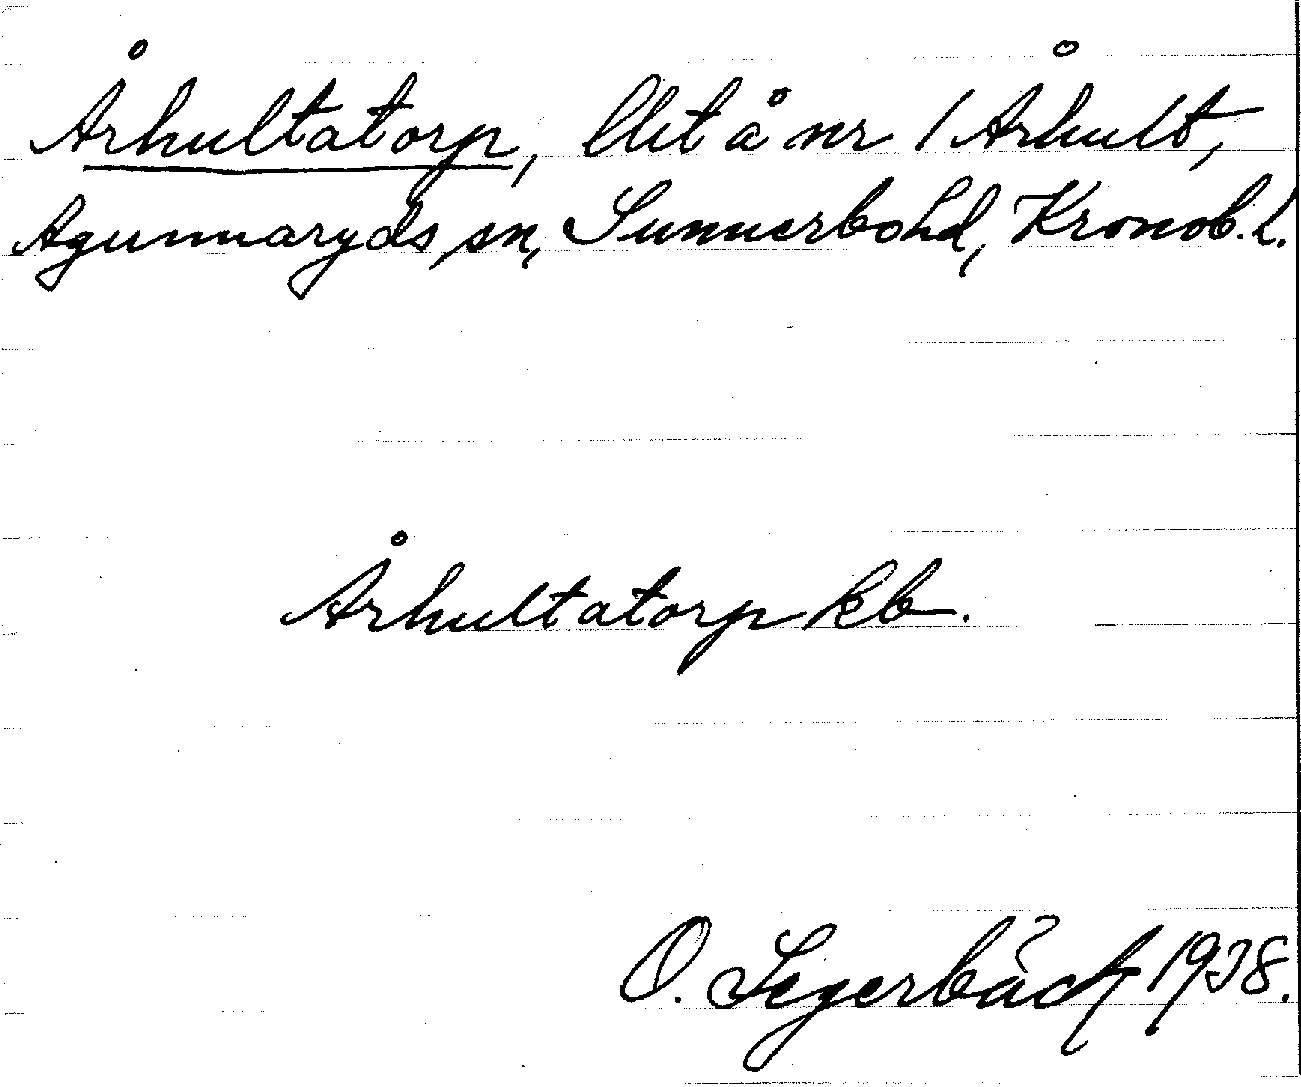 Århultatorp, llit å nr 1 Århult,
Agunnaryds sn, Sunnerbo hd, Kronob. l.
Århultatorp kb.
O. Segerbäck 1938.